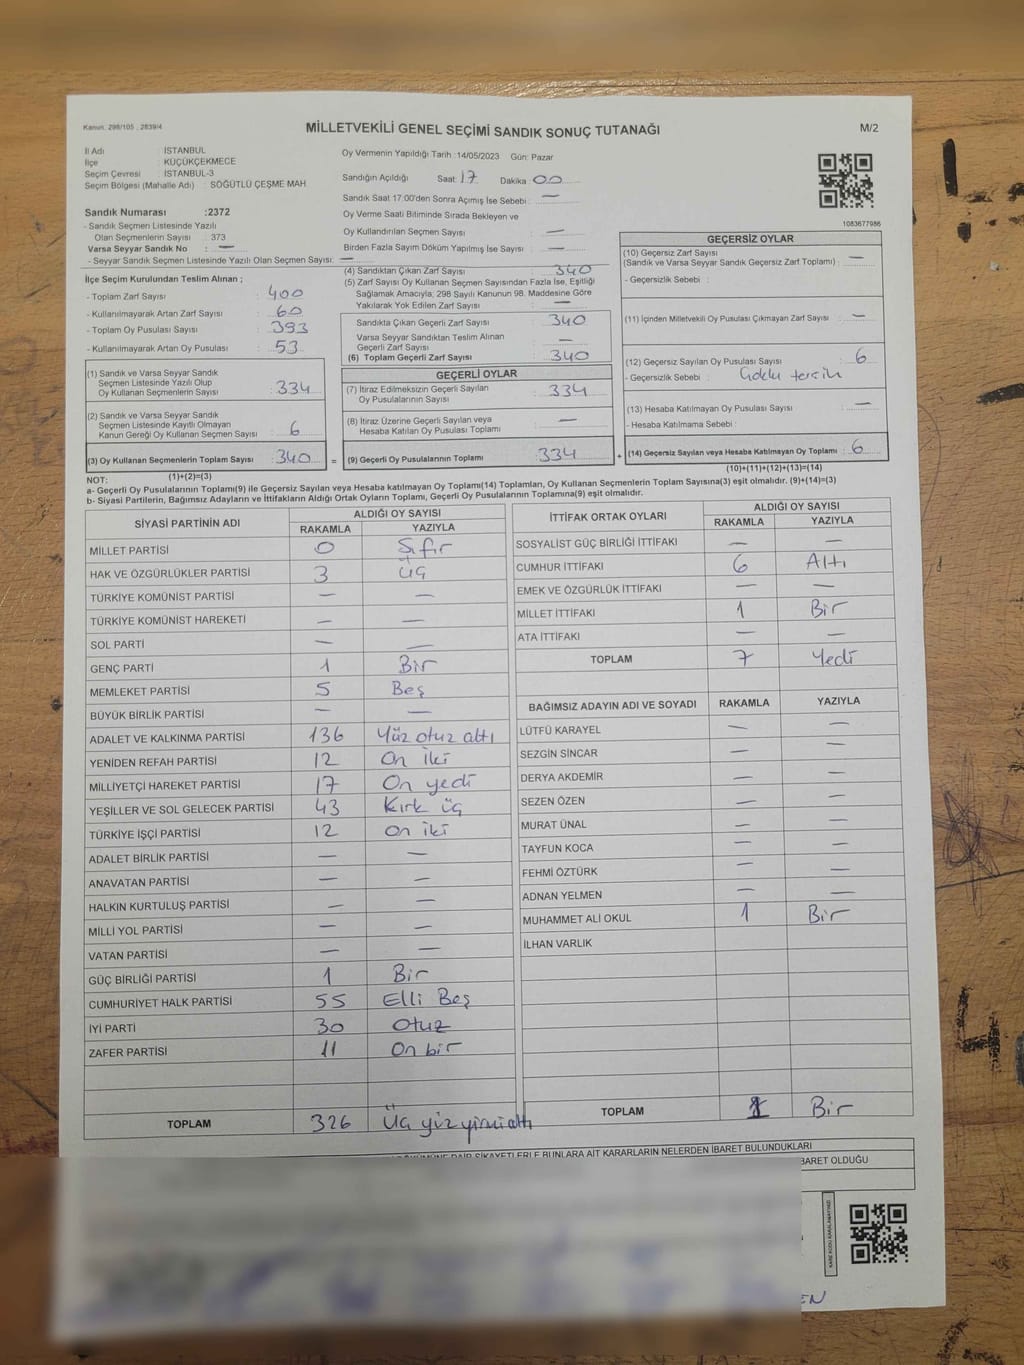 Kanun: 298/105 ; 2839/4
MİLLETVEKİLİ GENEL SEÇİMİ SANDIK SONUÇ TUTANAĞI
M/2
İl Adı : İSTANBUL
İlçe : KÜÇÜKÇEKMECE
Seçim Çevresi : İSTANBUL-3
Seçim Bölgesi (Mahalle Adı) : SÖĞÜTLÜ ÇEŞME MAH
Sandık Numarası :2372
- Sandık Seçmen Listesinde Yazılı
Olan Seçmenlerin Sayısı : 373
Varsa Seyyar Sandık No : —
- Seyyar Sandık Seçmen Listesinde Yazılı Olan Seçmen Sayısı: —
Oy Vermenin Yapıldığı Tarih :14/05/2023 Gün: Pazar
Sandığın Açıldığı Saat: 17 Dakika : 00
Sandık Saat 17:00'den Sonra Açımış İse Sebebi : —
Oy Verme Saati Bitiminde Sırada Bekleyen ve
Oy Kullandırılan Seçmen Sayısı : —
Birden Fazla Sayım Döküm Yapılmış İse Sayısı : —
1083677986
İlçe Seçim Kurulundan Teslim Alınan ;
- Toplam Zarf Sayısı : 400
- Kullanılmayarak Artan Zarf Sayısı : 60
- Toplam Oy Pusulası Sayısı : 393
- Kullanılmayarak Artan Oy Pusulası : 53
(1) Sandık ve Varsa Seyyar Sandık
Seçmen Listesinde Yazılı Olup
Oy Kullanan Seçmenlerin Sayısı : 334
(2) Sandık ve Varsa Seyyar Sandık
Seçmen Listesinde Kayıtlı Olmayan
Kanun Gereği Oy Kullanan Seçmen Sayısı : 6
(3) Oy Kullanan Seçmenlerin Toplam Sayısı : 340
(1)+(2)=(3)
(4) Sandıktan Çıkan Zarf Sayısı : 340
(5) Zarf Sayısı Oy Kullanan Seçmen Sayısından Fazla İse, Eşitliği
Sağlamak Amacıyla; 298 Sayılı Kanunun 98. Maddesine Göre
Yakılarak Yok Edilen Zarf Sayısı : —
Sandıkta Çıkan Geçerli Zarf Sayısı : 340
Varsa Seyyar Sandıktan Teslim Alınan
Geçerli Zarf Sayısı : —
(6) Toplam Geçerli Zarf Sayısı : 340
GEÇERLİ OYLAR
(7) İtiraz Edilmeksizin Geçerli Sayılan
Oy Pusulalarının Sayısı : 334
(8) İtiraz Üzerine Geçerli Sayılan veya
Hesaba Katılan Oy Pusulası Toplamı : —
= (9) Geçerli Oy Pusulalarının Toplamı : 334
GEÇERSİZ OYLAR
(10) Geçersiz Zarf Sayısı
(Sandık ve Varsa Seyyar Sandık Geçersiz Zarf Toplamı) : —
- Geçersizlik Sebebi :
(11) İçinden Milletvekili Oy Pusulası Çıkmayan Zarf Sayısı : —
(12) Geçersiz Sayılan Oy Pusulası Sayısı : 6
- Geçersizlik Sebebi : tercih
(13) Hesaba Katılmayan Oy Pusulası Sayısı : —
- Hesaba Katılmama Sebebi :
+ (14) Geçersiz Sayılan veya Hesaba Katılmayan Oy Toplamı : 6
(10)+(11)+(12)+(13)=(14)
NOT:
a- Geçerli Oy Pusulalarının Toplamı(9) ile Geçersiz Sayılan veya Hesaba katılmayan Oy Toplamı(14) Toplamları, Oy Kullanan Seçmenlerin Toplam Sayısına(3) eşit olmalıdır. (9)+(14)=(3)
b- Siyasi Partilerin, Bağımsız Adayların ve İttifakların Aldığı Ortak Oyların Toplamı, Geçerli Oy Pusulalarının Toplamına(9) eşit olmalıdır.
SİYASİ PARTİNİN ADI ALDIĞI OY SAYISI
RAKAMLA YAZIYLA
MİLLET PARTİSİ 0 Sıfır
HAK VE ÖZGÜRLÜKLER PARTİSİ 3 Üç
TÜRKİYE KOMÜNİST PARTİSİ — —
TÜRKİYE KOMÜNİST HAREKETİ — —
SOL PARTİ — —
GENÇ PARTİ 1 Bir
MEMLEKET PARTİSİ 5 Beş
BÜYÜK BİRLİK PARTİSİ — —
ADALET VE KALKINMA PARTİSİ 136 Yüz otuz altı
YENİDEN REFAH PARTİSİ 12 On İki
MİLLİYETÇİ HAREKET PARTİSİ 17 On yedi
YEŞİLLER VE SOL GELECEK PARTİSİ 43 Kırk üç
TÜRKİYE İŞÇİ PARTİSİ 12 on iki
ADALET BİRLİK PARTİSİ — —
ANAVATAN PARTİSİ — —
HALKIN KURTULUŞ PARTİSİ — —
MİLLİ YOL PARTİSİ — —
VATAN PARTİSİ — —
GÜÇ BİRLİĞİ PARTİSİ 1 Bir
CUMHURİYET HALK PARTİSİ 55 Elli Beş
İYİ PARTİ 30 Otuz
ZAFER PARTİSİ 11 On bir
TOPLAM 326 Üç yüz yirmi altı
İTTİFAK ORTAK OYLARI ALDIĞI OY SAYISI
RAKAMLA YAZIYLA
SOSYALİST GÜÇ BİRLİĞİ İTTİFAKI — —
CUMHUR İTTİFAKI 6 Altı
EMEK VE ÖZGÜRLÜK İTTİFAKI — —
MİLLET İTTİFAKI 1 Bir
ATA İTTİFAKI — —
TOPLAM 7 Yedi
BAĞIMSIZ ADAYIN ADI VE SOYADI RAKAMLA YAZIYLA
LÜTFÜ KARAYEL — —
SEZGİN SİNCAR — —
DERYA AKDEMİR — —
SEZEN ÖZEN — —
MURAT ÜNAL — —
TAYFUN KOCA — —
FEHMİ ÖZTÜRK — —
ADNAN YELMEN — —
MUHAMMET ALİ OKUL 1 Bir
İLHAN VARLIK
TOPLAM 1 Bir
DAİR ŞİKAYETLERLE BUNLARA AİT KARARLARIN NELERDEN İBARET BULUNDUKLARI
BARET OLDUĞU
EN